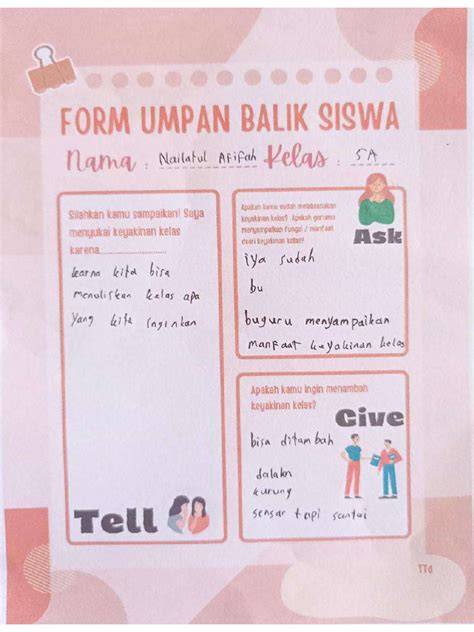 FORM UMPAN BALIK SISWA
Nama : Nailatul Afifah Kelas : 5A
Silahkan kamu sampaikan! Saya
menyukai keyakinan kelas
karena
karna kita bisa
menuliskan kelas apa
yang kita inginkan
Tell
Apakah kamu sudah melaksanakan
keyakinan kelas? Apakah gurumu
menyampaikan fungsi / manfaat
dari keyakinan kelas?
Ask
iya sudah
bu
buguru menyampaikan
manfaat keyakinan kelas
Apakah kamu ingin menambah
keyakinan kelas?
Give
bisa ditambah
dalam
kurung
sensar tapi santai
TTD